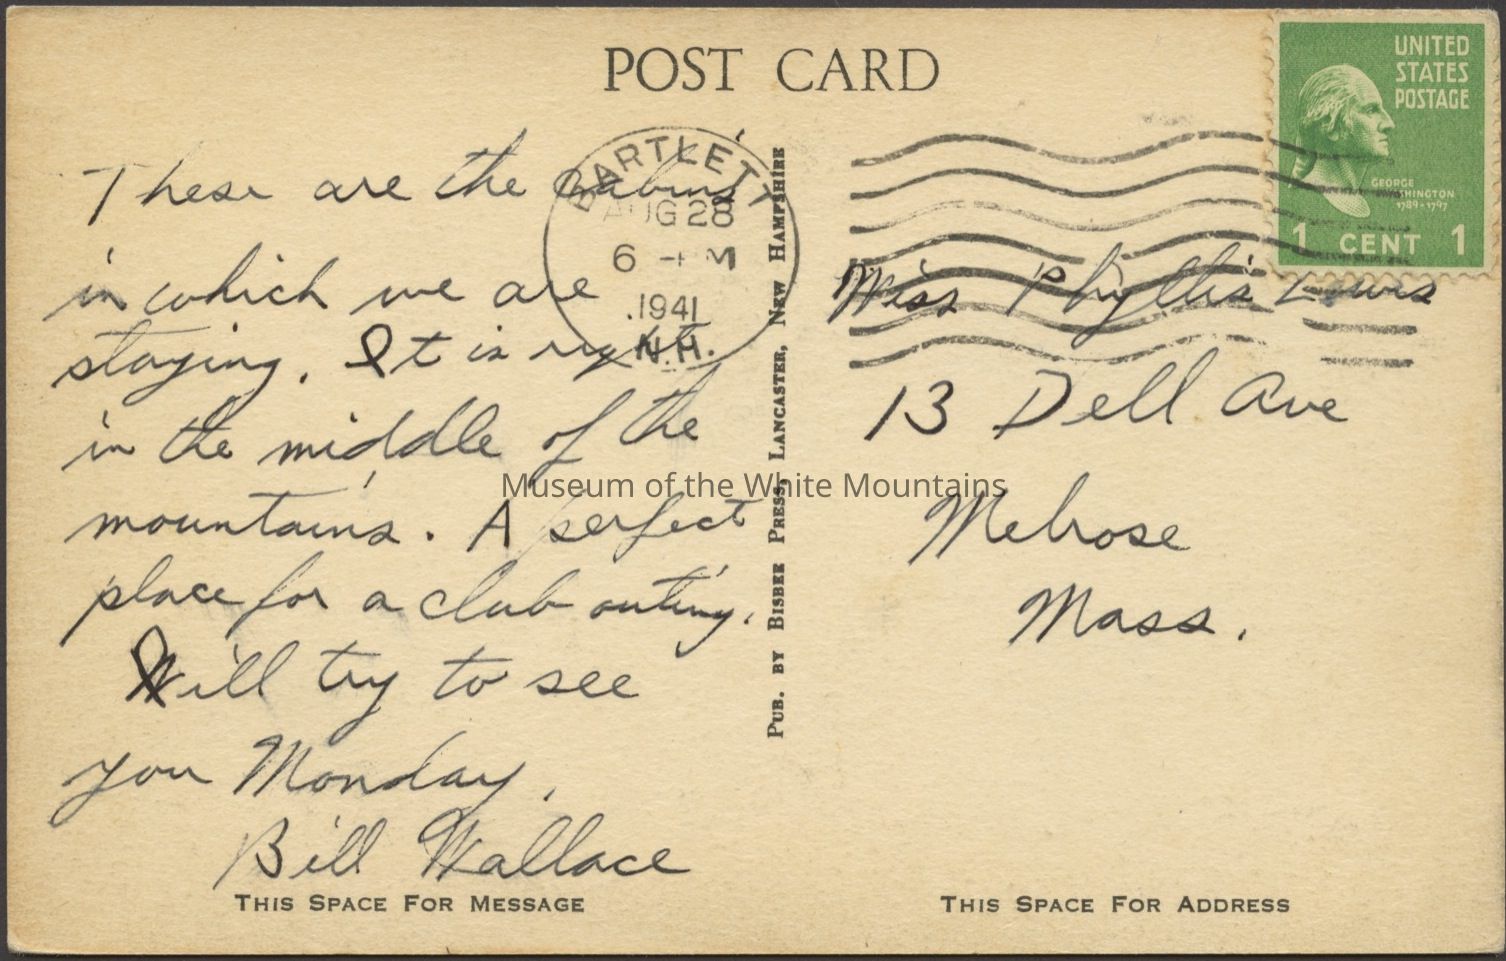 POST CARD
UNITED
STATES
POSTAGE
GEORGE
WASHINGTON
1789-1797
1 CENT 1
BARTLETT
AUG 28
6 - PM
1941
N.H.
These are the cabins
in which we are
staying. It is right
in the middle of the
mountains. A perfect
place for a club outing.
Will try to see
you Monday.
Bill Wallace
THIS SPACE FOR MESSAGE
PUB. BY BISBEE PRESS, LANCASTER, NEW HAMPSHIRE
Miss Phyllis Lewis
13 Dell Ave
Melrose
Mass.
THIS SPACE FOR ADDRESS
Museum of the White Mountains